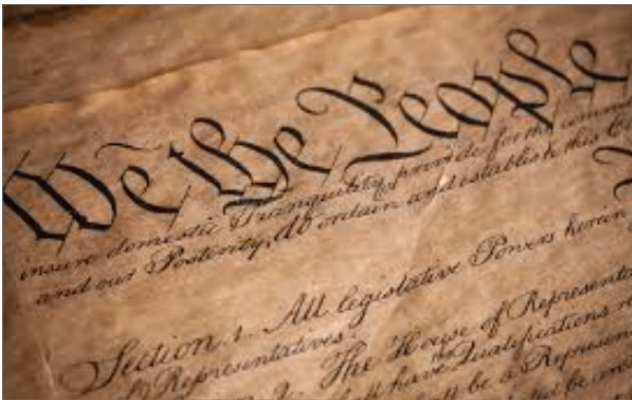 We the People
insure domestic Tranquility, provide for the common
and our Posterity, do ordain and establish this
Section. 1. All legislative Powers herein
of Representatives.
The House of Representa
shall have Qualifications
shall be a Represen